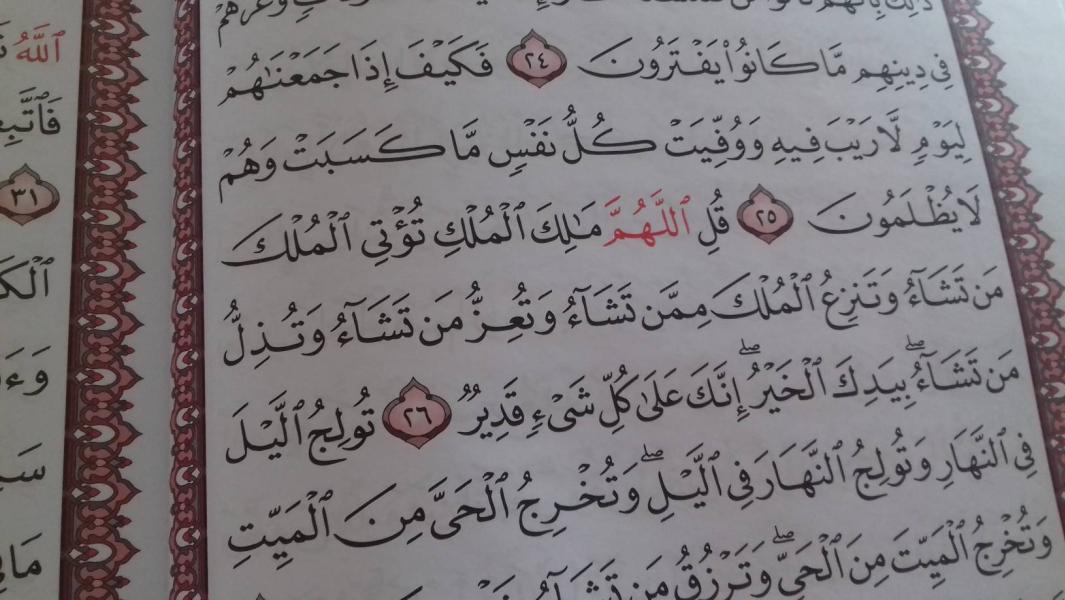 ذَٰلِكَ بِأَنَّهُمْ قَالُوا۟ وَغَرَّهُمْ
فِى دِينِهِم مَّا كَانُوا۟ يَفْتَرُونَ ٢٤ فَكَيْفَ إِذَا جَمَعْنَٰهُمْ
لِيَوْمٍ لَّا رَيْبَ فِيهِ وَوُفِّيَتْ كُلُّ نَفْسٍ مَّا كَسَبَتْ وَهُمْ
لَا يُظْلَمُونَ ٢٥ قُلِ ٱللَّهُمَّ مَٰلِكَ ٱلْمُلْكِ تُؤْتِى ٱلْمُلْكَ
مَن تَشَآءُ وَتَنزِعُ ٱلْمُلْكَ مِمَّن تَشَآءُ وَتُعِزُّ مَن تَشَآءُ وَتُذِلُّ
مَن تَشَآءُۖ بِيَدِكَ ٱلْخَيْرُۖ إِنَّكَ عَلَىٰ كُلِّ شَىْءٍ قَدِيرٌ ٢٦ تُولِجُ ٱلَّيْلَ
فِى ٱلنَّهَارِ وَتُولِجُ ٱلنَّهَارَ فِى ٱلَّيْلِۖ وَتُخْرِجُ ٱلْحَىَّ مِنَ ٱلْمَيِّتِ
وَتُخْرِجُ ٱلْمَيِّتَ مِنَ ٱلْحَىِّۖ وَتَرْزُقُ مَن تَشَآءُ
ٱللَّهُ
٣١